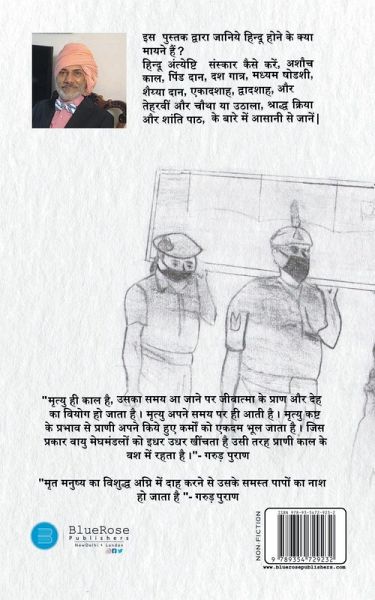 इस पुस्तक द्वारा जानिये हिन्दू होने के क्या
मायने हैं ?
हिन्दू अंत्येष्टि संस्कार कैसे करें, अशौच
काल, पिंड दान, दश गात्र, मध्यम षोडशी,
शैय्या दान, एकादशाह, द्वादशाह, और
तेहरवीं और चौथा या उठाला, श्राद्ध क्रिया
और शांति पाठ, के बारे में आसानी से जानें|
"मृत्यु ही काल है, उसका समय आ जाने पर जीवात्मा के प्राण और देह
का वियोग हो जाता है । मृत्यु अपने समय पर ही आती है । मृत्यु कष्ट
के प्रभाव से प्राणी अपने किये हुए कर्मों को एकदम भूल जाता है । जिस
प्रकार वायु मेघमंडलों को इधर उधर खींचता है उसी तरह प्राणी काल के
वश में रहता है ।"- गरुड़ पुराण
"मृत मनुष्य का विशुद्ध अग्नि में दाह करने से उसके समस्त पापों का नाश
हो जाता है "- गरुड़ पुराण
B
BlueRose
Publishers
NewDelhi • London
NON-FICTION
ISBN 978-93-5472-923-2
9 789354 729232
www.bluerosepublishers.com